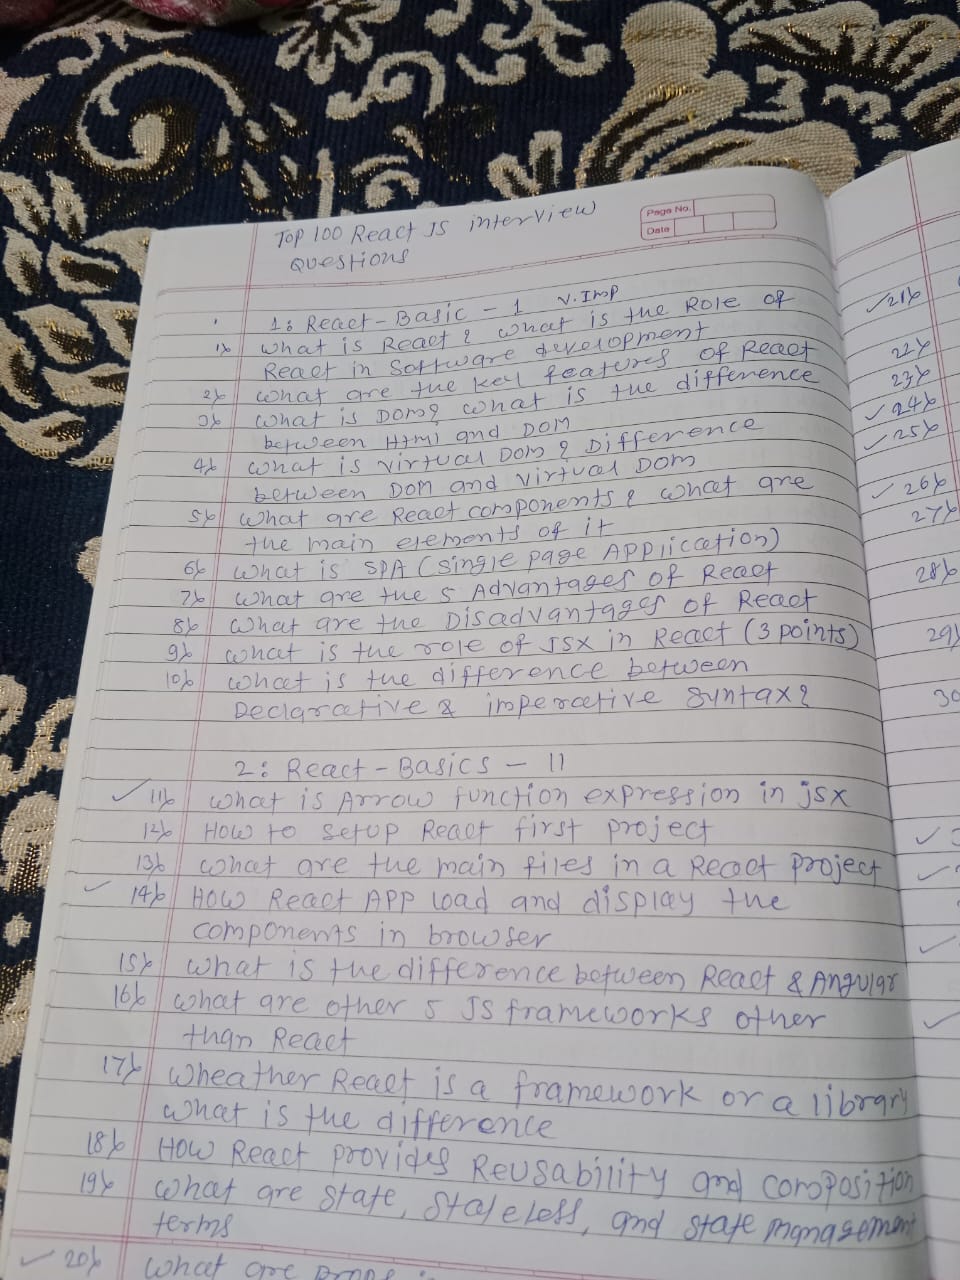 Top 100 React JS interview
Questions
Page No.
Date
1: React-Basic - 1 V.Imp
1) What is React & what is the Role of
React in Software development
2) what are the key features of React
3) what is DOM? what is the difference
between Html and DOM
4) what is virtual DOM? Difference
between DOM and virtual DOM
5) what are React components & what are
the main elements of it
6) what is SPA (single page Application)
7) what are the 5 Advantages of React
8) what are the Disadvantages of React
9) what is the role of JSX in React (3 points)
10) what is the difference between
Declarative & imperative syntax?
2: React-Basics - II
✓ 11) what is Arrow function expression in jsx
12) How to setup React first project
13) what are the main files in a React project
✓ 14) How React App load and display the
components in browser
15) what is the difference between React & Angular
16) what are other 5 JS frameworks other
than React
17) wheather React is a framework or a library
what is the difference
18) How React provides Reusability and composition
19) what are state, stateless, and state management
terms
✓ 20) what are props
✓ 21)
22)
23)
✓ 24)
✓ 25)
✓ 26)
27)
28)
29)
30